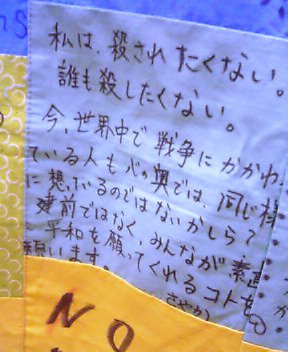 私は、殺されたくない。
誰も殺したくない。
今、世界中で戦争にかかわ
ている人も心の奥では、同じ様
に想っているのではないかしら?
建前ではなく、みんなが素直
平和を願ってくれるコトを
願います。
さやか
NO